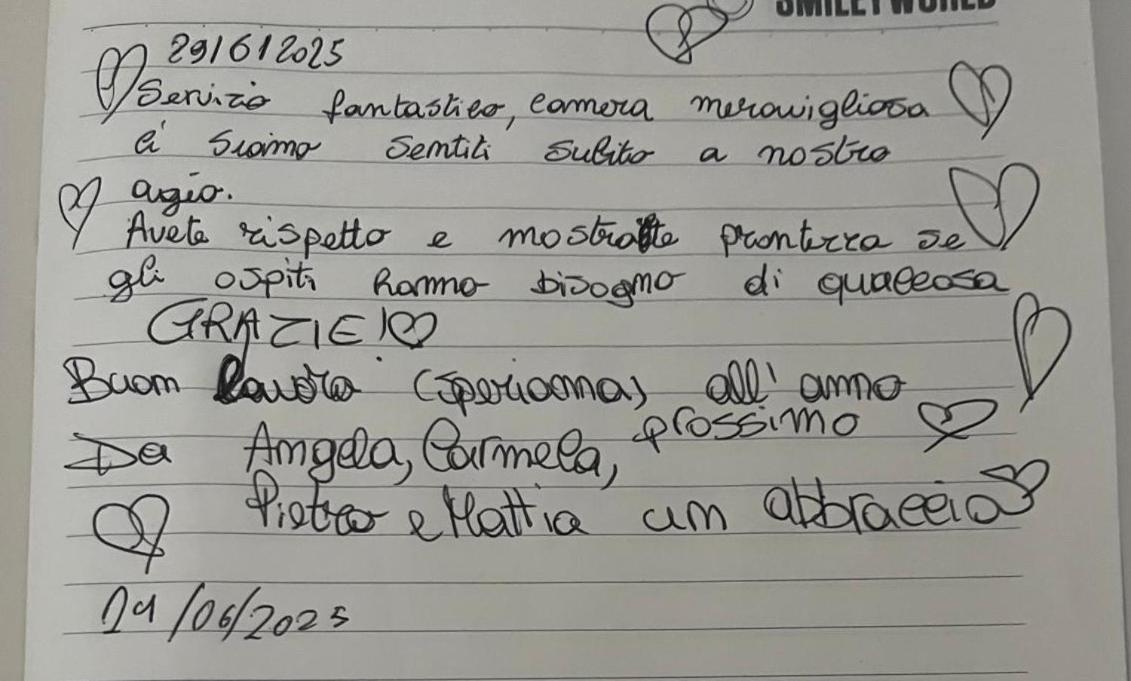 SMILEYWORLD
29/6/2025
Servizio fantastico, camera meravigliosa
ci siamo sentiti subito a nostro
agio.
Avete rispetto e mostrate prontezza se
gli ospiti hanno bisogno di qualcosa
GRAZIE!
Buon lavoro (speriamo) all'anno
prossimo
Da Angela, Carmela,
Pietro e Mattia un abbraccio